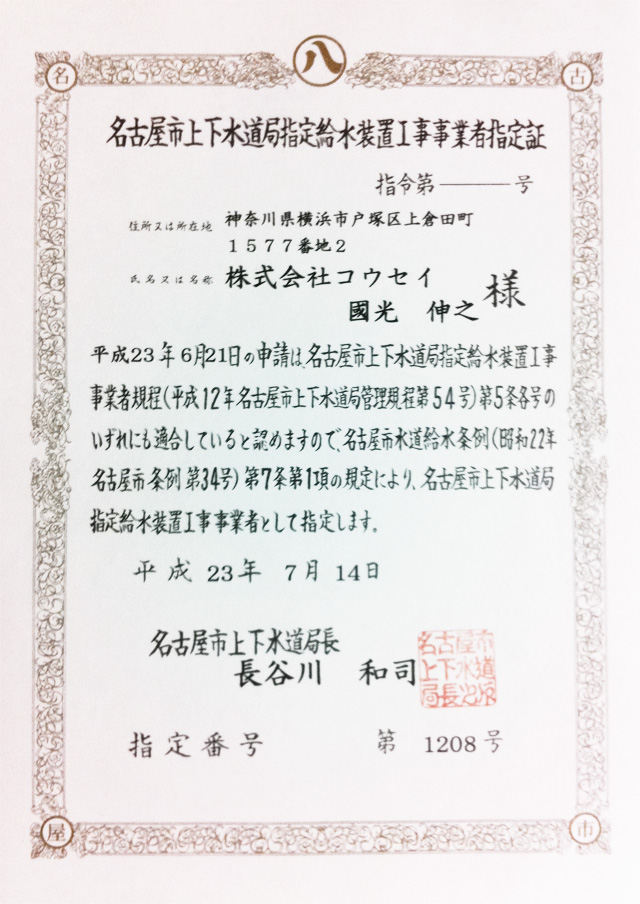 八
名 古
名古屋市上下水道局指定給水装置工事事業者指定証
指令第―――号
住所又は所在地 神奈川県横浜市戸塚区上倉田町
1577番地2
氏名又は名称 株式会社コウセイ
國光 伸之 様
平成23年6月21日の申請は、名古屋市上下水道局指定給水装置工事
事業者規程(平成12年名古屋市上下水道局管理規程第54号)第5条各号の
いずれにも適合していると認めますので、名古屋市水道給水条例(昭和22年
名古屋市条例第34号)第7条第1項の規定により、名古屋市上下水道局
指定給水装置工事事業者として指定します。
平成 23年 7月 14日
名古屋市上下水道局長
長谷川 和司
名古屋市
上下水道
局長之印
指定番号 第 1208号
屋 市